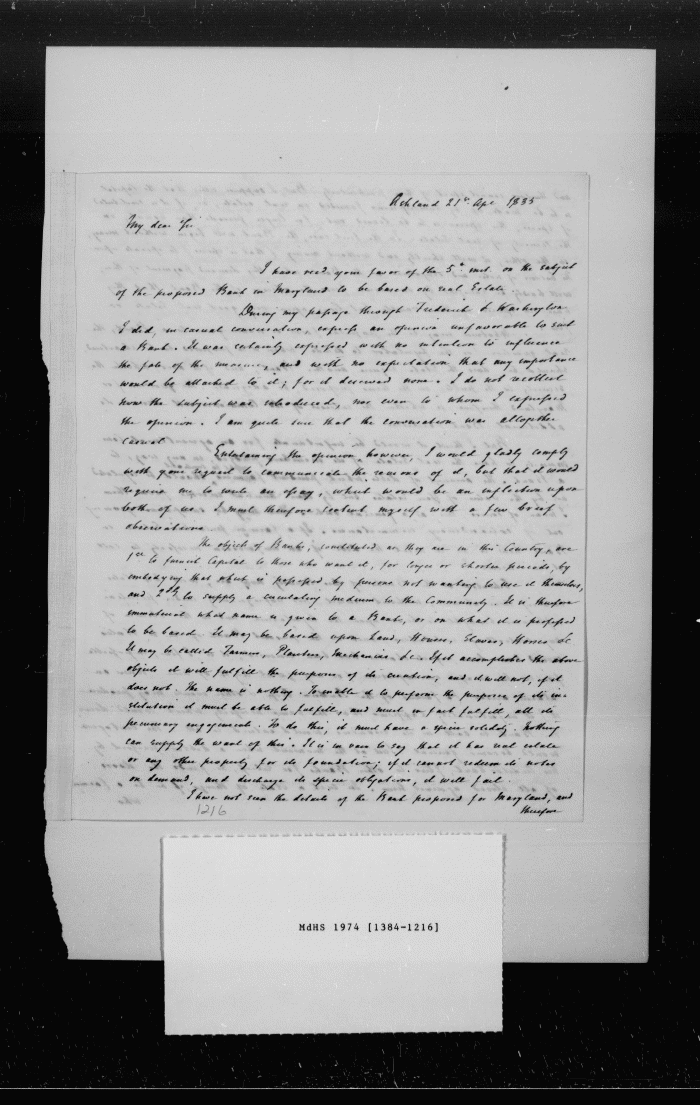 Ashland 21st Apl. 1835
My dear Sir
I have recd your favor of the 5th inst. on the subject
of the proposed Bank in Maryland to be based on real Estate.
During my passage through Frederick & Washington
I did, in casual conversation, express an opinion unfavorable to such
a Bank. It was certainly expressed with no intention to influence
the fate of the measure, and with no expectation that any importance
would be attached to it; for it deserved none. I do not recollect
how the subject was introduced, nor even to whom I expressed
the opinion. I am quite sure that the conversation was altogether
casual
Entertaining the opinion however, I would gladly comply
with your request to communicate the reasons of it, but that it would
require me to write an essay, which would be an infliction upon
both of us. I must therefore content myself with a few brief
observations
The objects of Banks, constituted as they are in this Country, are
1st to furnish Capital to those who want it, for longer or shorter periods, by
embodying that which is possessed by persons not wanting to use it themselves,
and 2dly to supply a circulating medium to the Community. It is therefore
immaterial what name is given to a Bank, or on what it is professed
to be based. It may be based upon Land, Houses, Slaves, Horses &c
It may be called Farmers, Planters, Mechanics &c. If it accomplishes the above
objects it will fulfill the purposes of its creation, and it will not, if it
does not. The name is nothing. To enable it to perform the purposes of its in-
stitution it must be able to fulfill, and must in fact fulfill, all its
pecuniary engagements. To do this, it must have a specie solidity. Nothing
can supply the want of this. It is in vain to say that it has real estate
or any other property for its foundation; if it cannot redeem its notes
on demand, and discharge its specie obligations, it will fail.
I have not seen the details of the Bank proposed for Maryland, and
therefore
1216
MdHS 1974 [1384-1216]